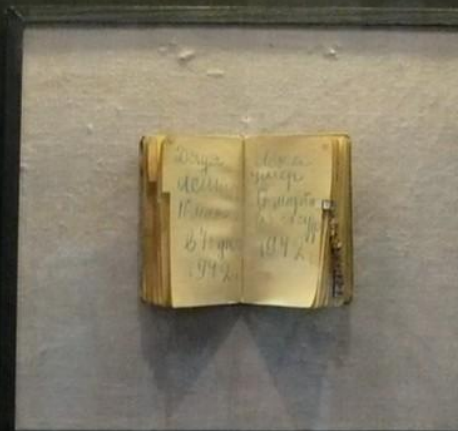 Дядя
Леша
10 мая
в 4ч дня
1942г
Лека
умер
марта
1942г